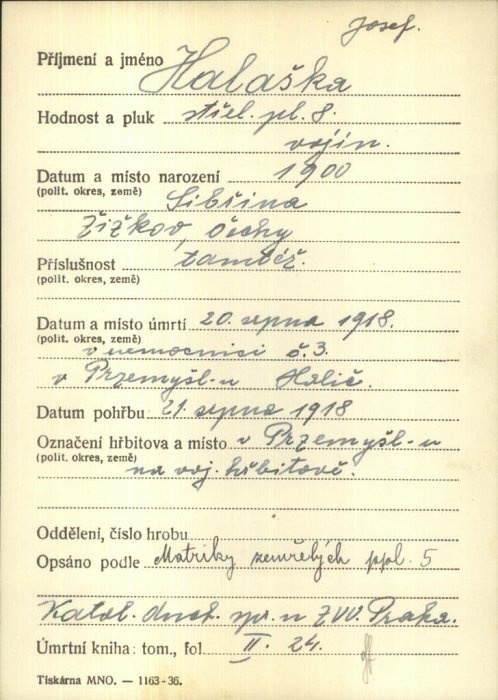 Josef.
Příjmení a jméno Halaška
Hodnost a pluk střel. pl. 8.
vojín.
Datum a místo narození 1900
(polit. okres, země) Sibřina
Žižkov, Čechy
Příslušnost tamtéž.
(polit. okres, země)
Datum a místo úmrtí 20. srpna 1918.
(polit. okres, země)
v nemocnici č. 3.
v Przemyšl-u Halič.
Datum pohřbu 21. srpna 1918
Označení hřbitova a místo v Przemyšl-u
(polit. okres, země)
na voj. hřbitově.
Oddělení, číslo hrobu
Opsáno podle Matriky zemřelých ppl. 5
Katol. duch. spr. u ZVV. Praha.
Úmrtní kniha: tom., fol. II. 24.
Tiskárna MNO. — 1163-36.